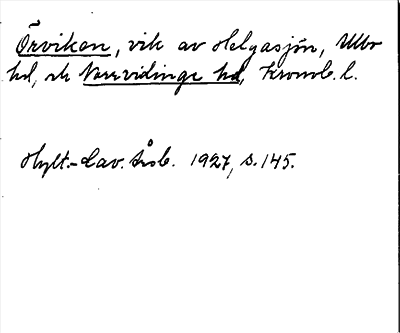 Örviken, vik av Helgasjön, Ulbo
hd, sk Norrvidinge hd, Kronob. l.
Hylt.-Cav. årsb. 1927, s. 145.